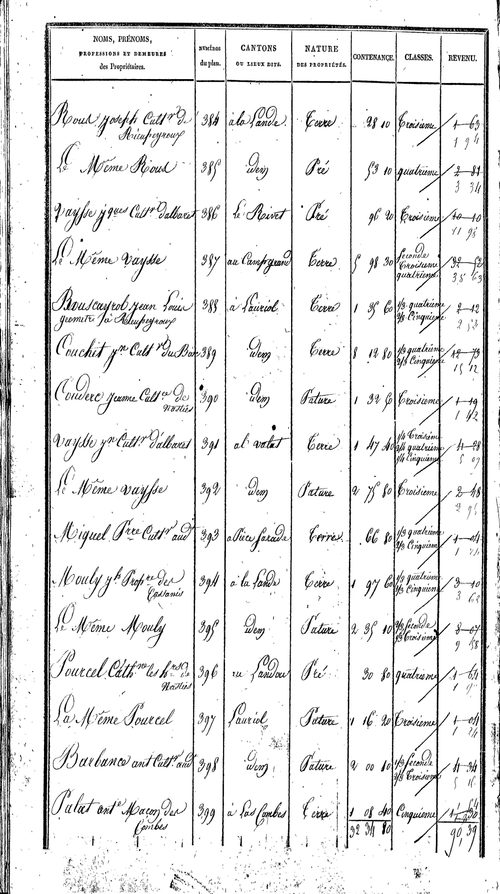 NOMS, PRÉNOMS, PROFESSIONS ET DEMEURES des Propriétaires. NUMÉROS du plan. CANTONS OU LIEUX DITS. NATURE DES PROPRIÉTÉS. CONTENANCE. CLASSES. REVENU.
Rous joseph Cultr de Rieupeyroux 384 à la Lande Terre 28 10 Troisieme 1 63
1 94
Le Même Rous 385 idem Pré 53 10 quatrième 2 81
3 34
Vaysse jques Cultr d'albaret 386 Le Rivet Pré 96 20 Troisième 10 10
11 98
Le Même Vaysse 387 au Camp grand Terre 5 98 30 seconde Troisieme quatrieme 32 52
35 63
Bouscayrol jean Louis à Rieupeyroux 388 à Lauriol Terre 1 35 60 1/3 quatrième 2/3 Cinquieme 2 12
2 53
Couchet jn Cultr du Bar 389 idem Terre 8 12 80 1/3 quatrième 2/3 Cinquieme 12 73
15 12
Couderc jeanne Cultce de 390 idem Pature 1 32 6 Troisieme 1 19
1 42
Vaysse jn Cultr d'albaret 391 al valat Terre 1 47 40 1/4 Troisième 2/4 quatrieme 1/4 Cinquieme 4 28
5 09
Le Même Vaysse 392 idem Pature 2 75 80 Troisieme 2 48
Miquel Pre Cultr aud 393 Terre 66 80 1/3 quatrième 2/3 Cinquieme 1 04
1 24
Mouly jh Propre des 394 à la Lande Terre 1 97 60 1/3 quatrième 2/3 Cinquieme 3 10
3 68
Le Même Mouly 395 idem Pature 2 35 10 seconde Troisieme 8 07
9 58
Pourcel Cathne les hers de 396 Pré 30 80 quatrieme 1 64
La Même Pourcel 397 Lauriol Pature 1 16 20 Troisieme 1 04
1 24
Barbance ant Cultr aud 398 idem Pature 2 00 10 1/3 seconde 2/3 Troisieme 4 34
Palat ante Maçon des Combes 399 à Las Combes Terre 1 08 40 Cinquieme
32 34 80 90, 39